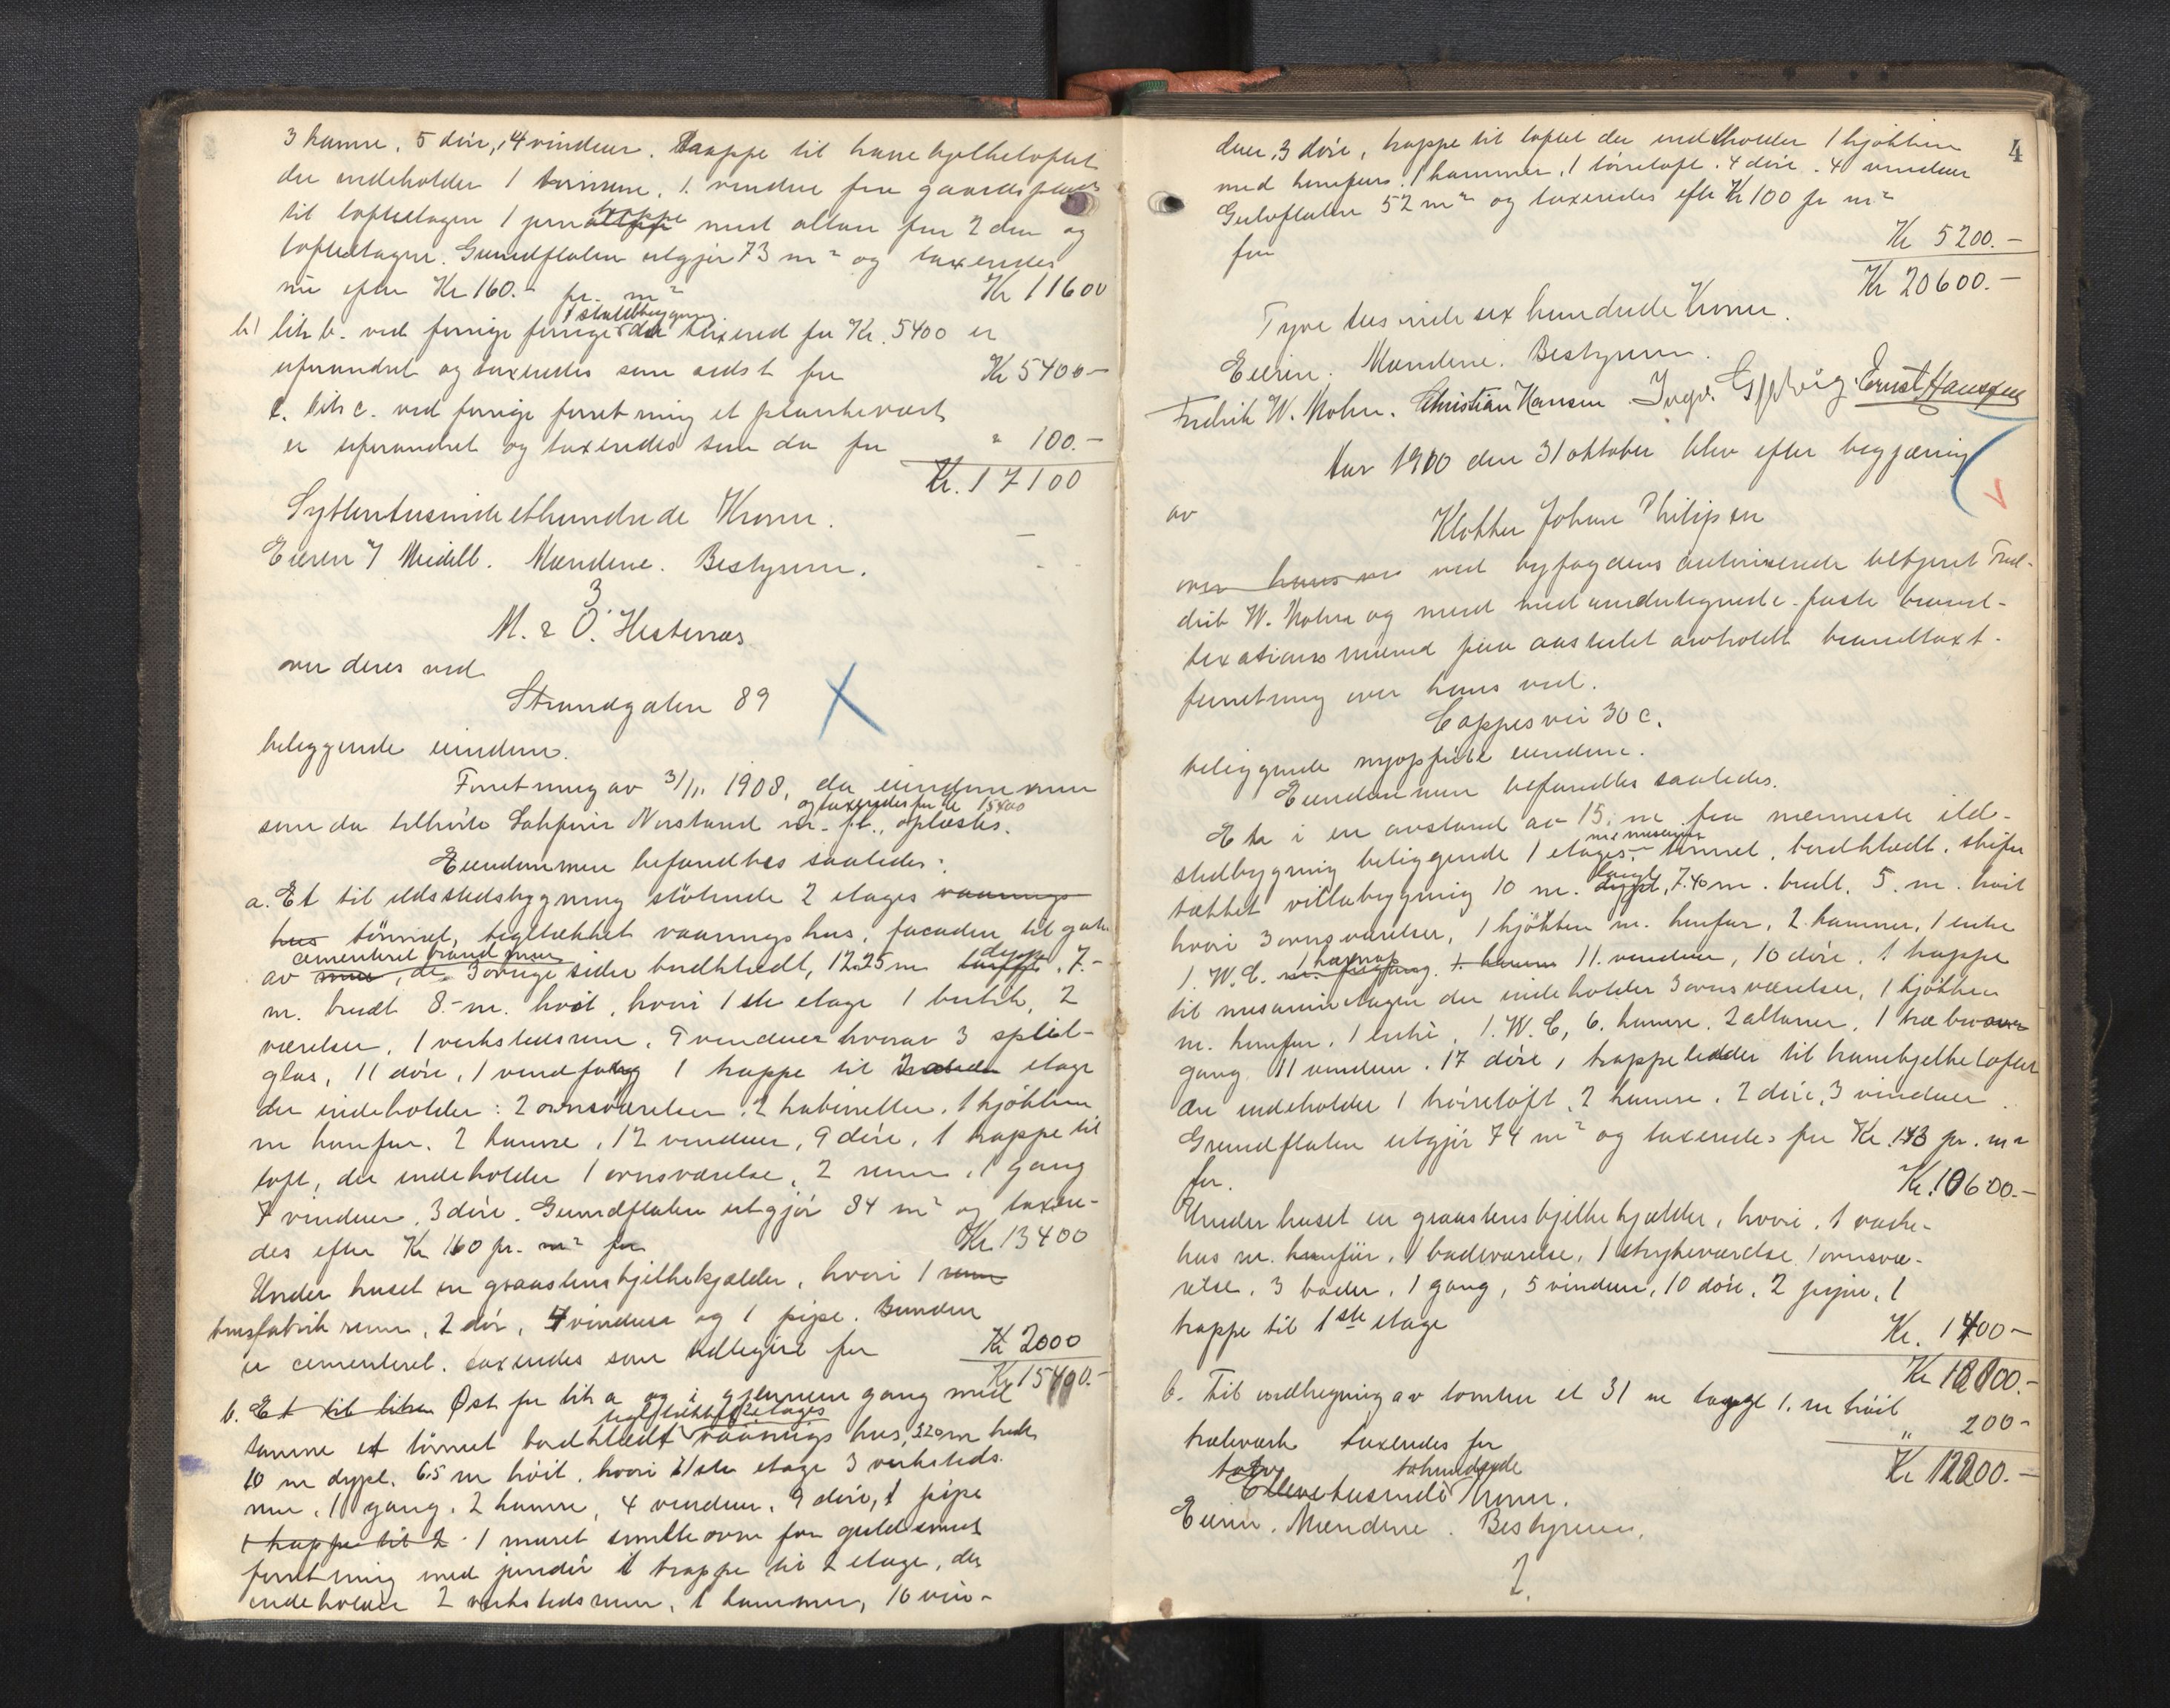 3 kamre, 5 döre, 4 vinduer. Trappe til hanebjelkeloftet
der indeholder 1 torrum, 1 vindue fra gaardsplads
til loftsetagen 1 trappe med altan fra 2den og
loftsetagen. Grundflaten utgjör 73 m² og taxeredes
nu efter Kr 160.- pr. m² Kr 11600
b) litr b. ved forrige 1 staldbygning da taxered for Kr. 5400 er
uforandret og taxeredes som sidst for Kr 5400-
c. litr c. ved forrige forretning et plankeværk
er uforandret og taxeredes som da for " 100.-
Kr. 17100
Syttentusindeethundrede Kroner.
Eieren Meidell. Mændene. Bestyreren.
3
M. & O. Hestenæs
over deres ved
Strandgaten 89
beliggende eiendom.
Forretning av 3/11. 1908, da eiendommen
og taxeredes for Kr 15400
som da tilhörte Norstrand, oplæstes.
Eiendommen befandtes saaledes:
a. Et til ildsstedsbygning stötende 2 etages vaanings
hus tömret, tegltækket vaaningshus, facaden til gaten
cementeret brandmur dypt
av mur, de 3 övrige sider bordklædt, 12.25 m længde, 7.-
m. bredt 8.- m. höit, hvori 1ste etage 1 butik, 2
værelser, 1 verkstedsrum, 9 vinduer hvorav 3 speil-
glas, 11 döre, 1 vindfang 1 trappe til 2 etage
der indeholder: 2 ovnsværelser, 2 kabinetter, 1 kjökken
m komfur, 2 kamre, 12 vinduer, 9 döre, 1 trappe til
loft, der indeholder 1 ovnsværelse, 2 rum, 1 gang
7 vinduer, 3 döre. Grundflaten utgjör 84 m² og taxere-
des efter Kr 160 pr. m² for Kr. 13400
Under huset en graastensbjelkekjælder, hvori 1 rum
brusfabrik rum, 2 dör, 4 vinduer og 1 pipe. Bunden
er cementeret. taxeredes som tidligere for Kr 2000
Kr 15400.-
b. Et til litra Öst for litr a og i gjennemgang med
tegltækket 2 etages
samme et tömret bordklædt vaanings hus, m bredt
10 m dypt, 6.5 m höit, hvori 1ste etage 3 verksteds-
rum, 1 gang, 2 kamre, 4 vinduer, 9 döre, 1 pipe
1 trappe til 2. 1 muret smelteovn for guldsmed
forretning med jerndör 1 trappe til 2 etage, der
indeholder 2 verkstedsrum, 1 kammer, 10 vin-
4
duer, 3 döre, trappe til loftet der indeholder 1 kjökken
med komfur, 1 kammer, 1 törreloft, 4 döre, 4 vinduer
Gulvflaten 52 m² og taxeredes efter Kr 100 pr m²
for Kr 5200.-
Kr 20600.-
Tyve tusinde sex hundrede Kroner.
Eieren. Mændene. Bestyreren.
Fredrik W. Mohn. Christian Hansen. Ernst Hanssen
Aar 1910 den 31 oktober blev efter begjæring
av
Klokker Johan Philipsen
over hans ved byfogdens autoriserede betjent Fred-
drik W. Mohn og med undertegnede faste brand-
taxationsmænd paa aastedet avholdt brandtaxt-
forretning over hans ved.
Cappesvei 30 c.
beliggende nyopförte eiendom.
Eiendommen befandtes saaledes.
Et i en avstand av 15 m fra nærmeste ild-
m mesanin
stedbygning beliggende 1 etages, tömret, bordklædt, skifer
langt
tækket villabygning 10 m. dypt, 7.40 m. bredt, 5. m. höit
hvori 3 ovnsværelser, 1 kjökken m. komfur, 2 kammer, 1 entre
1 W.C. 11. vinduer, 10 döre, 1 trappe
til mesaninetagen der indeholder 3 ovnsværelser, 1 kjökken
m. komfur, 1 entré, 1. W.C, 6. kamre, 2 altaner, 1
gang 11 vinduer, 17 döre, trappe ledder til hanebjelkeloftet
der indeholder 1 törreloft, 2 kamre, 2 döre, 3 vinduer.
Grundflaten utgjör 74 m² og taxeredes for Kr. 143 pr. m²
for. Kr. 10600.-
Under huset en graastensbjelkekjælder, hvori, 1 vaske-
hus m. komfür, 1 badeværelse, 1 strykeværelse 1 ovnsvæ-
relse, 3 boder, 1 gang, 5 vinduer, 10 döre, 2 piper, 1
trappe til 1ste etage Kr. 1400-
Kr 12000.-
b. Til indhegning av tomten et 31 m langt 1. m höit
trælverk taxeredes for " 200-
Kr 12200.-
tolv tohundrede
Ellevetusinde Kroner.
Eieren. Mændene. Bestyreren.